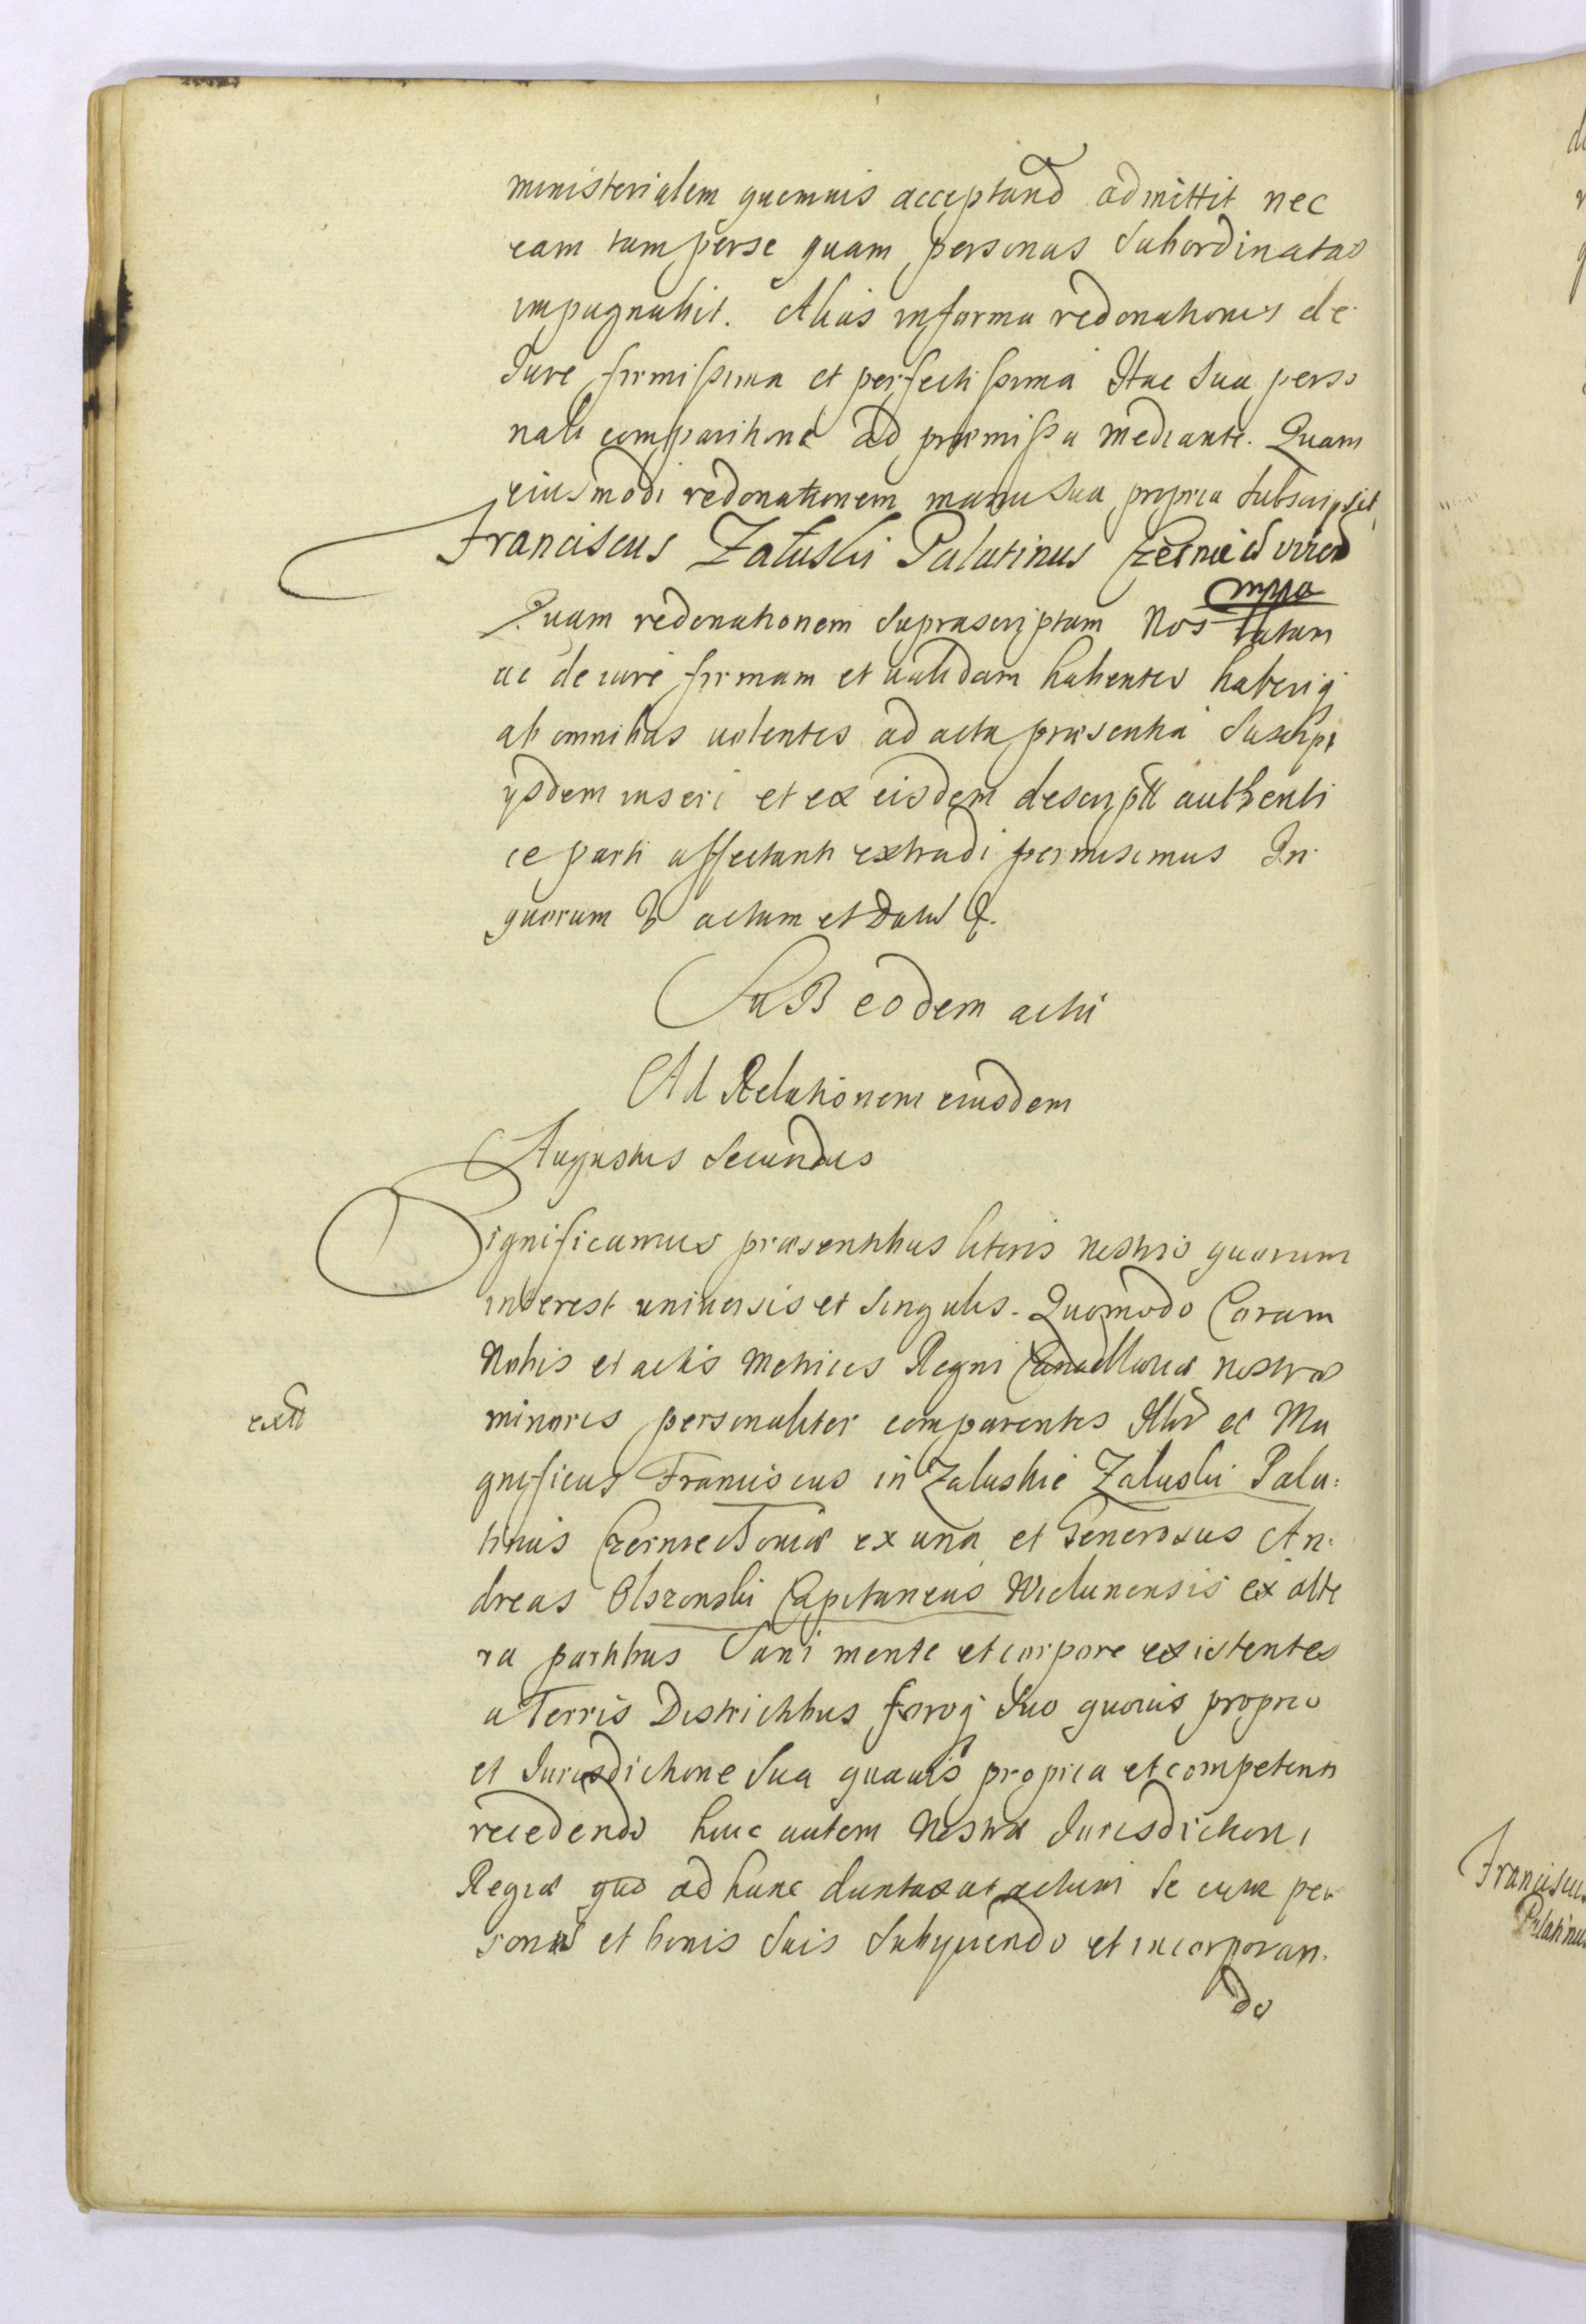 ministerialem quemvis acceptand admittit nec
eam tam per se quam personas Subordinatas
impugnabit. Alias in forma redonationis de
Jure firmissima et perfectissima Hac Sua perso
nali comparitione ad præmissa mediante. Quam
eiusmodi redonationem manu Sua propria Subscripsit
Franciscus Załuski Palatinus Czernie
mppa
Quam redonationem Suprascriptam Nos ratam
ac de iure firmam et validam habentes haberiq
ab omnibus volentes ad acta præsentia Suscipi
ysdem inseri et ex eisdem descriptt authenti
ce parti affectanti extradi permisimus In
quorum actum et Datu &.
SuB eodem actu
Ad Relationem eiusdem
Augustus Secundus
Significamus præsentibus literis nostris quorum
interest universis et Singulis. Quomodo Coram
Nobis et actis Metrices Regni Cancellariæ nostræ
minoris personaliter comparentes Illris et Ma
gnificus Franciscus in Zaluskie Zaluski Pala:
tinus Czerniechoviæ ex una et Generosus An:
dreas Olszonski Capitaneus Wielunensis ex alte
ra partibus Sani mente et corpore existentes
a Terris Districtibus foroq Suo quovis proprio
et Jurisdictione Sua quavis propria et competenti
recedendo huic autem Nostræ Jurisdictioni
Regiæ quo ad hunc duntaxat actum Se cum per
sonis et bonis Suis Subyciendo et incorporan.
do
extt
Franciscus
Palatinus